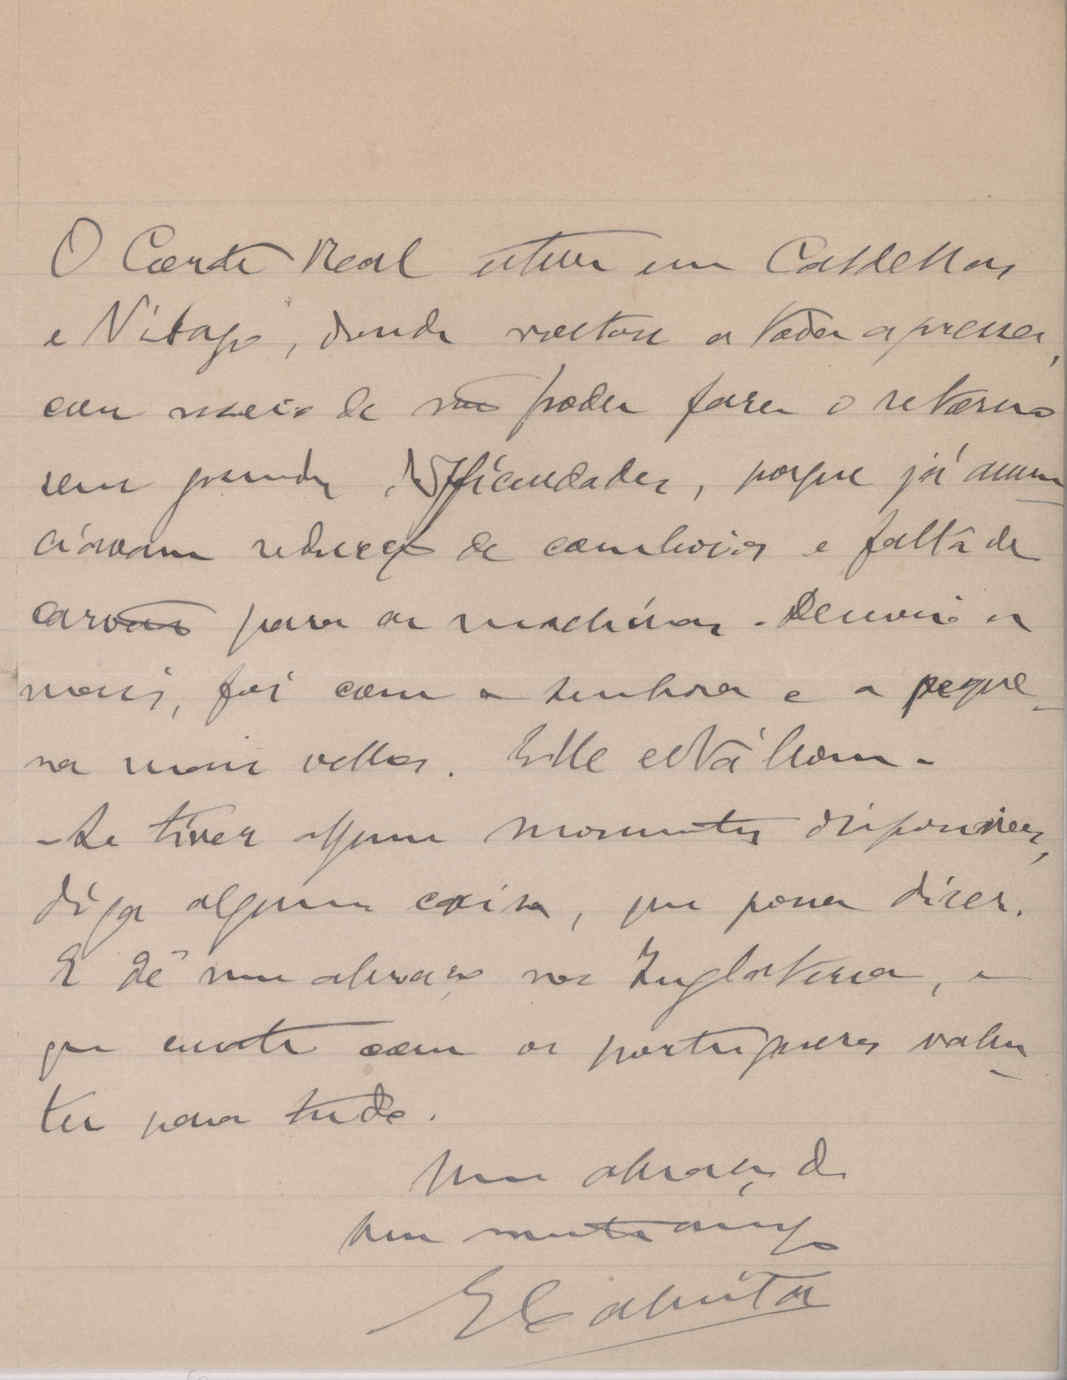 O Corte Real esteve em Caldellas
e Vidago, donde voltou a toda a pressa,
com receio de não poder fazer o retorno
sem grandes difficuldades, porque já anun
ciavam redução de comboios e falta de
carvão para as machinas. Demais a
mais, foi com a senhora e a peque-
na mais velha. Elle está bom.
- Se tiver alguns momentos disponiveis,
diga alguma coisa, que possa dizer.
E dê um abraço na Inglaterra, e
que conte com os portugueses valen-
tes para tudo.
Um abraço do
seu muito amigo